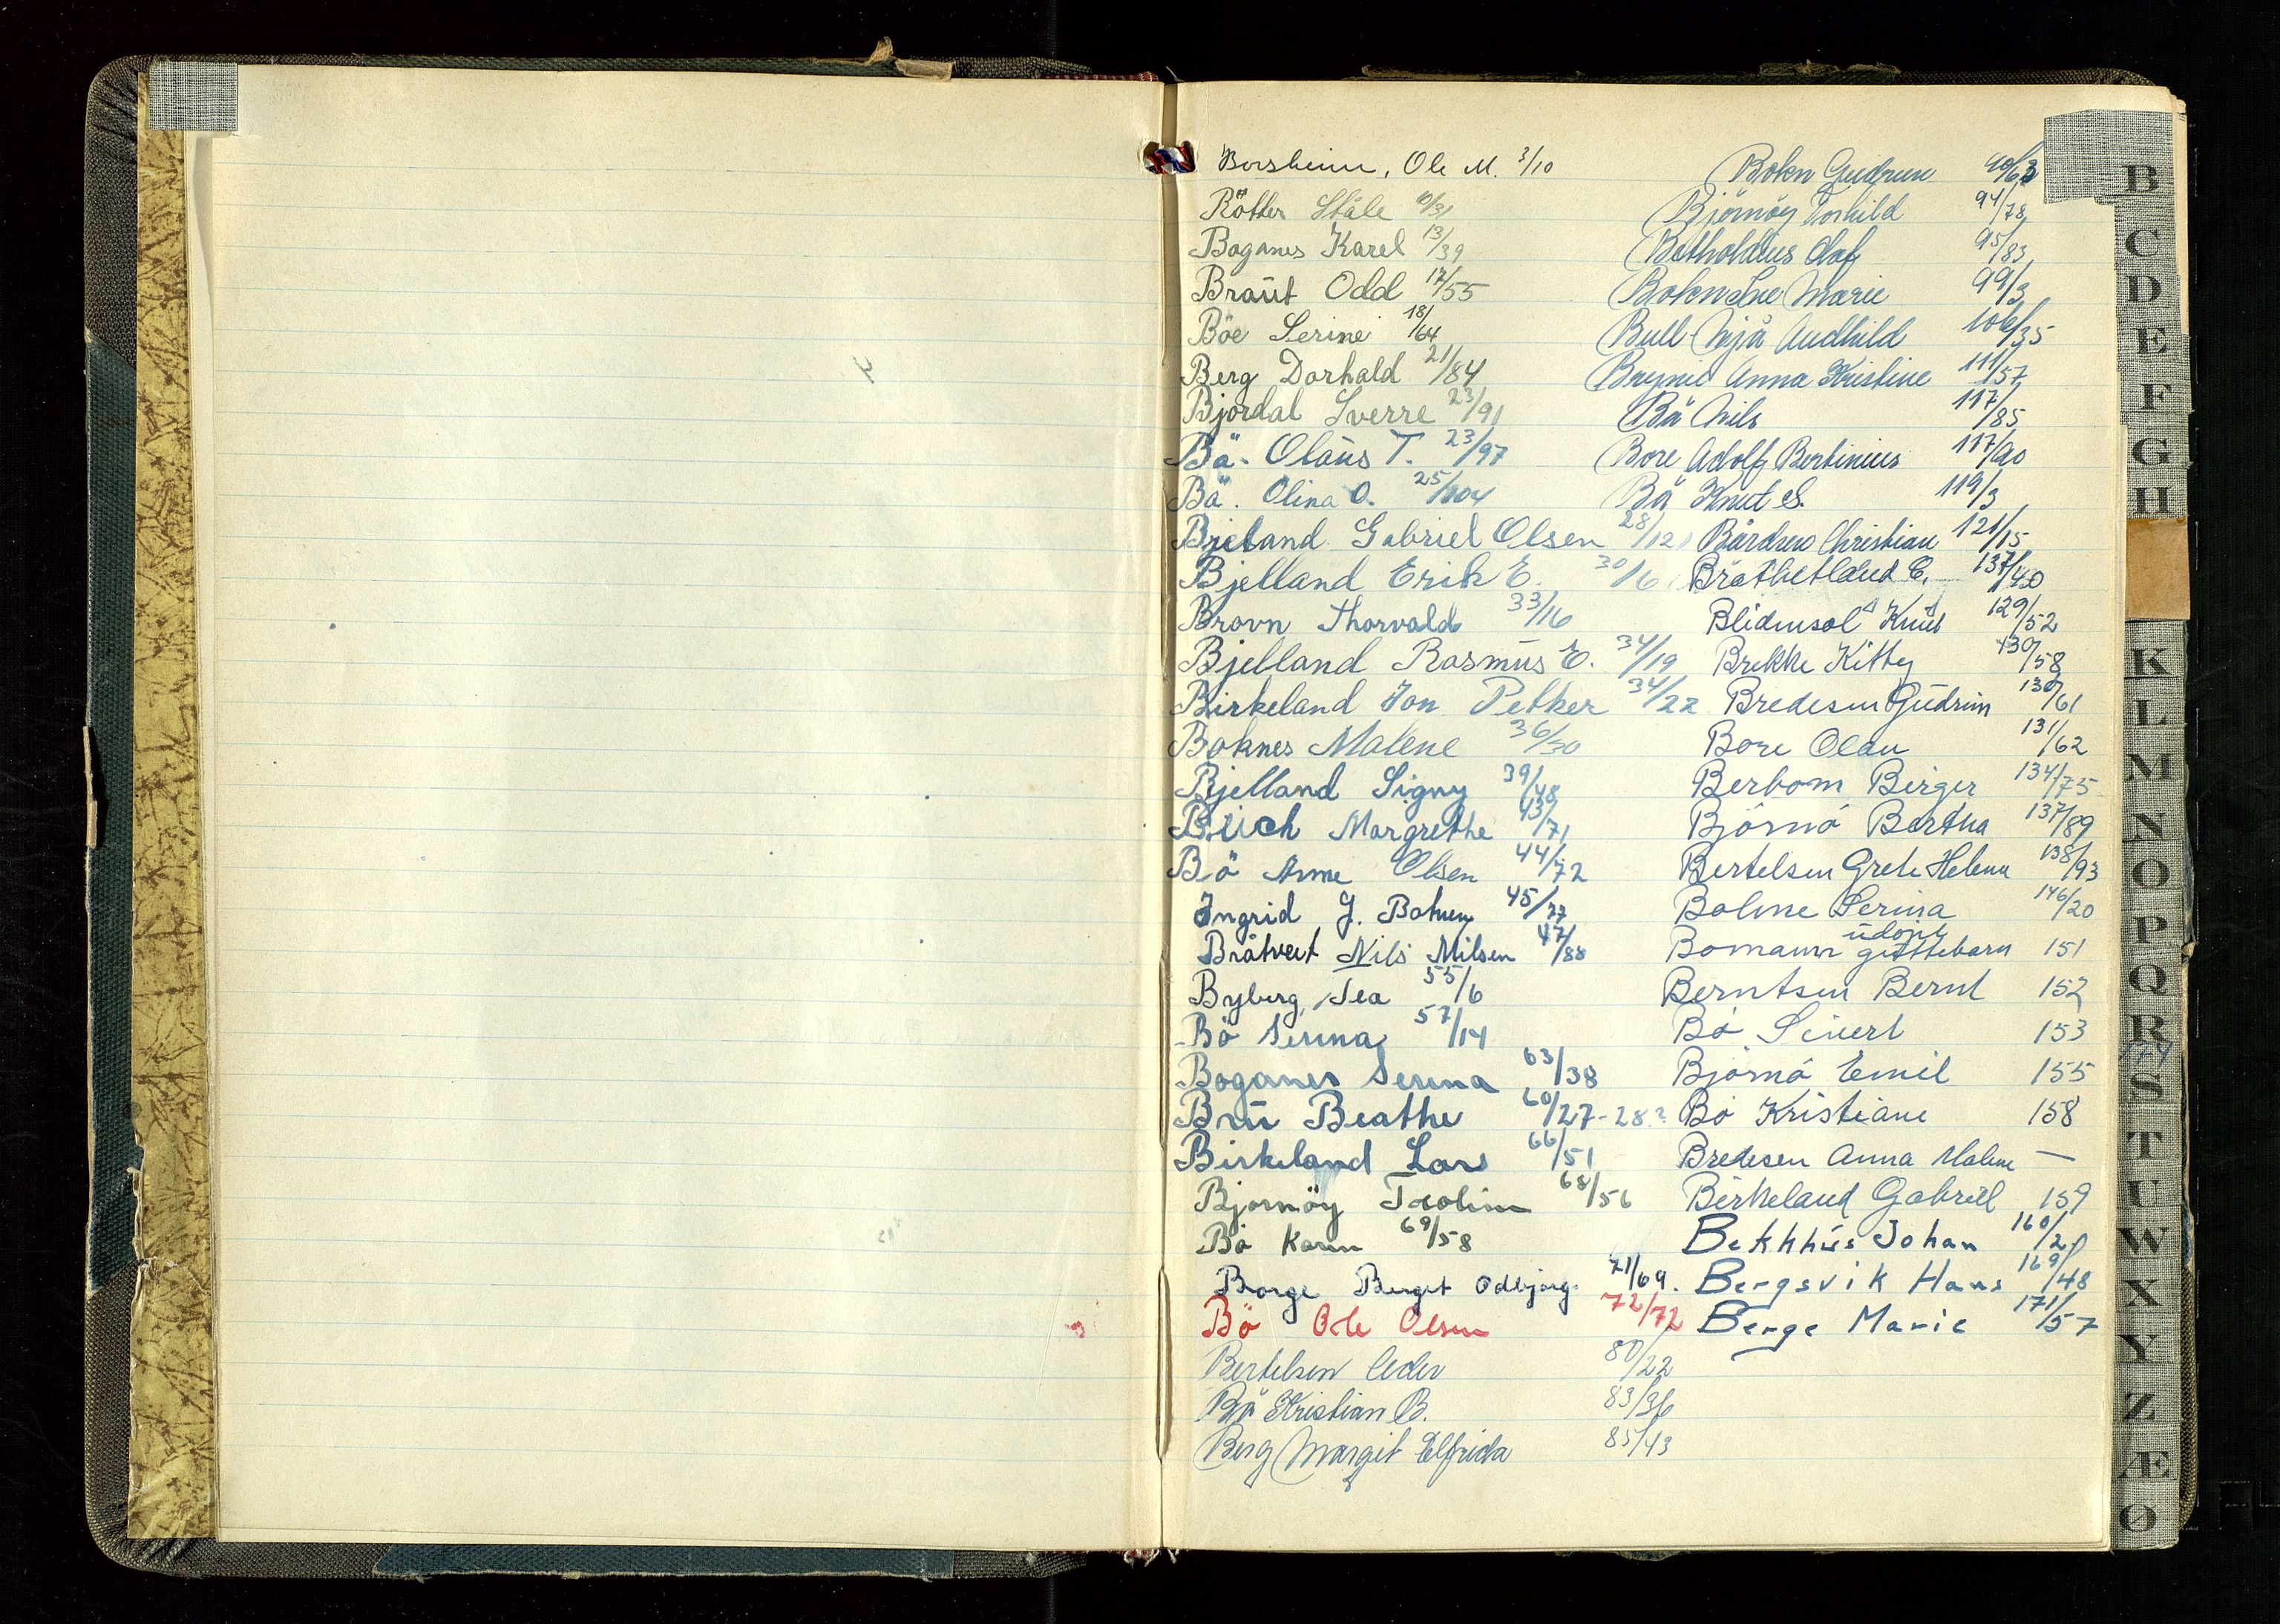 Borsheim, Ole M. 3/10
Rötter Ståle 10/31
Boganes Karel 13/39
Braut Odd 17/55
Böe Serine 18/64
Berg Dorhald 21/84
Bjordal Sverre 23/91
Bä. Olaus T. 23/97
Bä. Olina O. 25/104
Bjeland Gabriel Olsen 28/12
Bjelland Erik E. 30/6
Brovn Thorvald 33/16
Bjelland Rasmus E. 34/19
Birkeland Jon Petker 34/22
Boknes Malene 36/30
Bjelland Signy 39/48
Buch Margrethe 43/71
Bö Anne Olsen 44/72
Ingrid J. Bohren 45/77
Bråtveit Nils Nilsen 47/88
Byberg, Tea 55/6
Bö Serina 57/14
Boganes Serina 63/38
Bru Beathe 60/27-28?
Birkeland Lars 66/51
Bjornöy Tcoline 68/56
Bö Karen 69/58
Borge Berget Odbjörg. 71/69.
Bö Ole Olsen 72/72
Bertelsen Peder 80/22
Bö Kristian B. 83/36
Berg Margit Elfrida 85/43
Bokn Gudrun 90/63
Björnöy Torhild 94/78
Betholdus Olaf 95/83
Bokn Ine Marie 99/3
Bull-Njå Audhild 106/35
Bryne Anna Kristine 111/57
Bä Nils 117/85
Bore Adolf Bertinius 117/90
Bä Knut S. 119/3
Bårdsen Christian 121/15
Bråthetland E. 137/40
Blidensol Knut 129/52
Brekke Kitty 130/58
Bredesen Gudrun 130/61
Bore Olau 131/62
Berbom Berger 134/75
Björnö Bertha 137/89
Bertelsen Grete Helene 138/93
Bolme Serina 146/20
Bomann udöpt guttebarn 151
Berntsen Bernt 152
Bö Sivert 153
Björnö Emil 155
Bö Kristiane 158
Bredesen Anna Malene —
Birkeland Gabriel 159
Bekkhus Johan 160/20
Bergsvik Hans 169/48
Berge Marie 171/57
B
C
D
E
F
G
H
K
L
M
N
O
P
Q
R
S
T
U
W
X
Y
Z
Æ
Ø